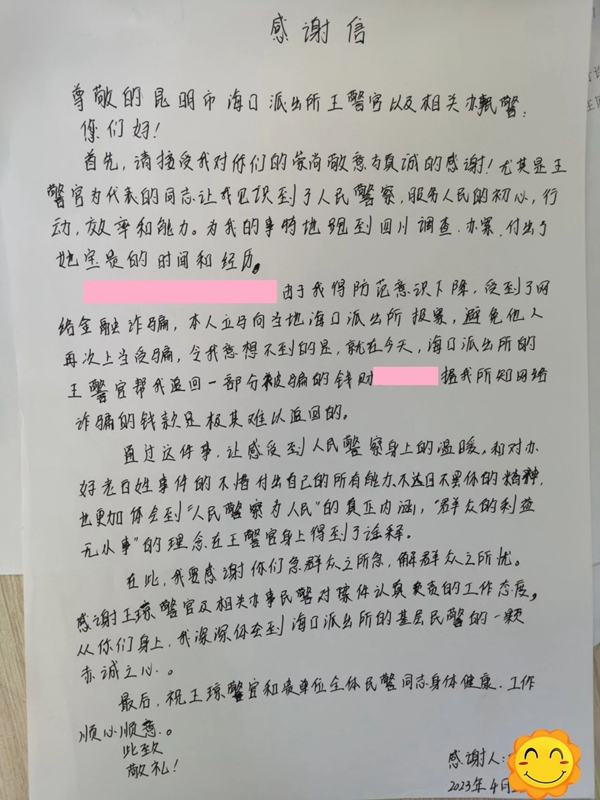 感谢信
尊敬的昆明市海口派出所王警官以及相关办执警:
您们好!
首先,请接受我对你们的崇尚敬意与真诚的感谢!尤其是王
警官为代表的同志让我见识到了人民警察,服务人民的初心,行
动,效率和能力。为我的事特地跑到四川调查.办案.付出了
她宝贵的时间和经历。
由于我得防范意识下降,受到了网
络金融诈骗,本人立马向当地海口派出所报案,避免他人
再次上当受骗,令我意想不到的是,就在今天,海口派出所的
王警官帮我返回一部分被骗的钱财
据我所知网络
诈骗的钱款是极其难以返回的。
通过这件事,让感受到人民警察身上的温暖,和对办
好老百姓事件的不惜付出自己的所有能力不达目不罢休的精神,
也更加体会到"人民警察为人民"的真正内涵,"群众的利益
无从事"的理念在王警官身上得到了诠释。
在此,我要感谢你们急群众之所急,解群众之所忧。
感谢王琼警官及相关办事民警对案件认真负责的工作态度。
从你们身上,我深深体会到海口派出所的基层民警的一颗
赤诚之心。
最后,祝王琼警官和贵单位全体民警同志身体健康.工作
顺心顺意。
此致
敬礼!
感谢人:
2023年4月